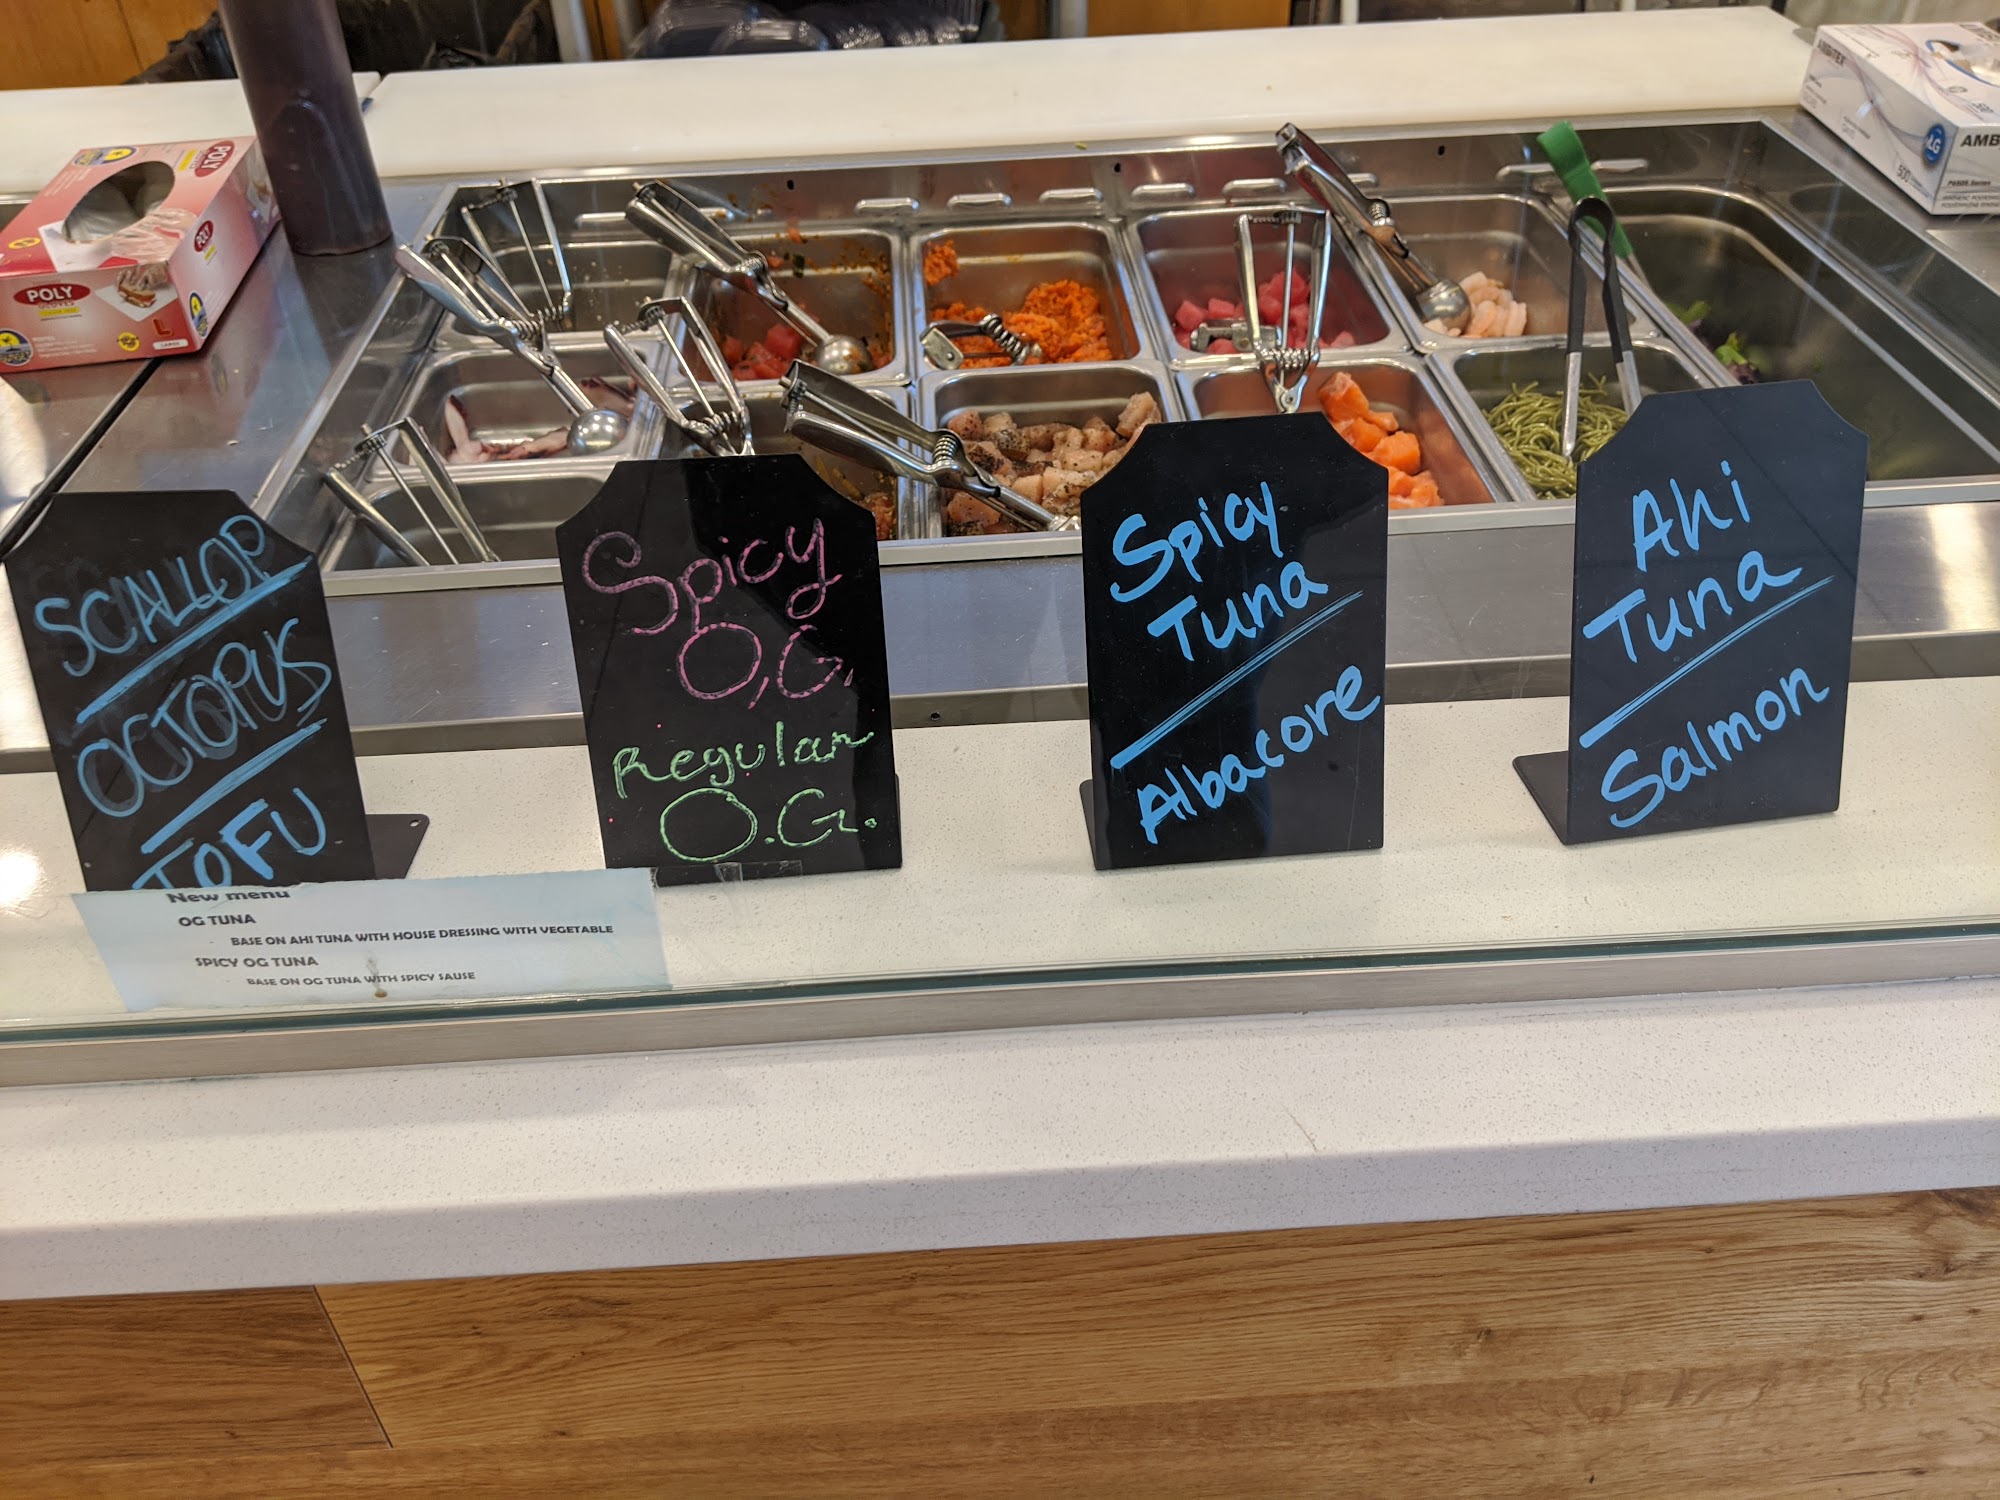 POLY
POLY
POLY
L
LARGE
AMBITEX
LG
AMB
500
P6505 Series
SCALLOP
OCTOPUS
TOFU
Spicy
O.G.
Regular
O.G.
Spicy
Tuna
Albacore
Ahi
Tuna
Salmon
New menu
OG TUNA
- BASE ON AHI TUNA WITH HOUSE DRESSING WITH VEGETABLE
SPICY OG TUNA
- BASE ON OG TUNA WITH SPICY SAUSE